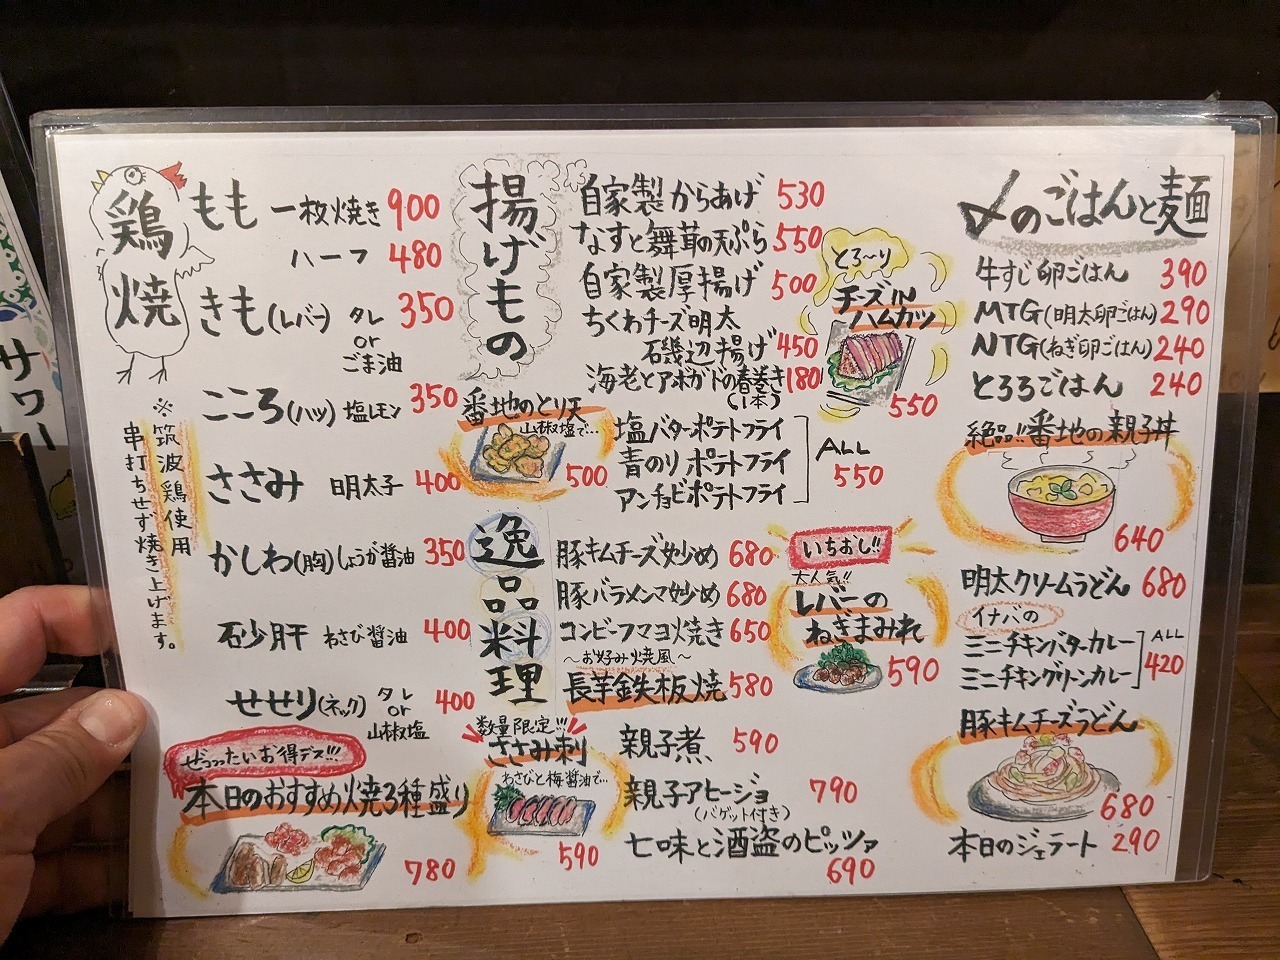 鶏焼
もも 一枚焼き 900
ハーフ 480
きも(レバー) タレ or ごま油 350
こころ(ハツ) 塩レモン 350
ささみ 明太子 400
かしわ(胸) しょうが醤油 350
砂肝 わさび醤油 400
せせり(ネック) タレ or 山椒塩 400
※筑波鶏使用
串打ちせず焼き上げます。
ぜっったいお得デス!!!
本日のおすすめ焼3種盛り
780
揚げもの
自家製からあげ 530
なすと舞茸の天ぷら 550
自家製厚揚げ 500
ちくわチーズ明太
磯辺揚げ 450
海老とアボガドの春巻き 180
(1本)
とろ〜り
チーズIN
ハムカツ
550
番地のとり天
山椒塩で…
500
塩バターポテトフライ
青のりポテトフライ
アンチョビポテトフライ
ALL
550
逸品料理
豚キムチーズ炒め 680
豚バラメンマ炒め 680
コンビーフマヨ焼き 650
〜お好み焼風〜
長芋鉄板焼 580
いちおし!!
大人気!!
レバーの
ねぎまみれ
590
数量限定!!!
ささみ刺
わさびと梅醤油で…
590
親子煮 590
親子アヒージョ 790
(バゲット付き)
七味と酒盗のピッツァ
690
〆のごはんと麺
牛すじ卵ごはん 390
MTG(明太卵ごはん) 290
NTG(ねぎ卵ごはん) 240
とろろごはん 240
絶品!!番地の親子丼
640
明太クリームうどん 680
イナバの
ミニチキンバターカレー
ミニチキングリーンカレー
ALL
420
豚キムチーズうどん
680
本日のジェラート 290
サワー